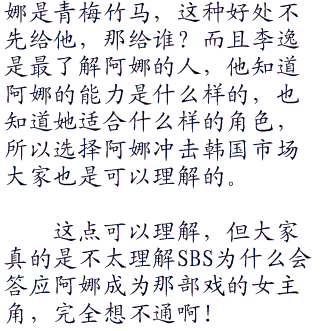 娜是青梅竹马，这种好处不
先给他，那给谁？而且李逸
是最了解阿娜的人，他知道
阿娜的能力是什么样的，也
知道她适合什么样的角色，
所以选择阿娜冲击韩国市场
大家也是可以理解的。
这点可以理解，但大家
真的是不太理解SBS为什么会
答应阿娜成为那部戏的女主
角，完全想不通啊！